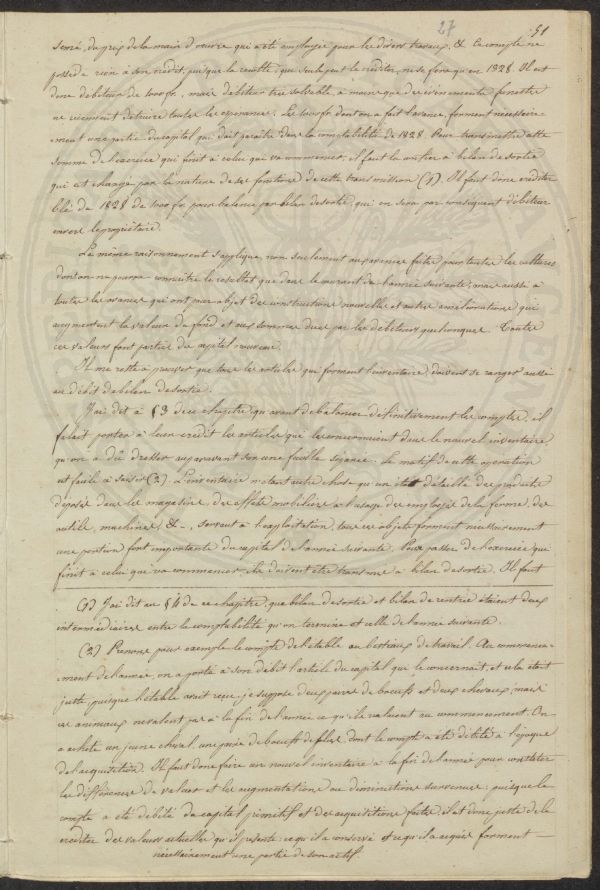 27 51
semé, du prix de la main d'œuvre qui a été employée pour les divers travaux, &. Ce compte ne
possède rien à son crédit, puisque la récolte, qui seule peut le créditer, ne se fera qu'en 1828. Il est
donc débiteur de 1000 fr., mais débiteur très solvable, à moins que des événements funestes
ne viennent détruire toutes les espérances. Les 1000 fr. dont on a fait l'avance, forment nécessaire-
ment une partie du capital qui doit paraître dans la comptabilité de 1828. Pour transmettre cette
somme de l'exercice qui finit à celui qui va commencer, il faut la confier à bilan de sortie
qui est chargé par la nature de ses fonctions de cette transmission (1). Il faut donc créditer
blé de 1828 de 1000 fr. pour balance par bilan de sortie, qui en sera par conséquent débiteur
envers le propriétaire.
Le même raisonnement s'applique, non seulement aux avances faites pour toutes les cultures
dont on ne pourra connaître le résultat que dans le courant de l'année suivante, mais aussi à
toutes les avances qui ont pour objet des constructions nouvelles et autres améliorations qui
augmentent la valeur du fond et aux sommes dues par les débiteurs quelconques. Toutes
ces valeurs font partie du capital nouveau.
Il me reste à prouver que tous les articles qui forment l'inventaire, doivent se ranger aussi
au débit de bilan de sortie.
J'ai dit à § 3 de ce chapitre, qu'avant de balancer définitivement les comptes, il
fallait porter à leur crédit les articles qui les concernaient dans le nouvel inventaire
qu'on a dû dresser auparavant sur une feuille séparée. Le motif de cette opération
est facile à saisir (2). L'inventaire n'étant autre chose qu'un état détaillé des produits
déposés dans les magasins, des effets mobiliers à l'usage des employés de la ferme, des
outils, machines, &-, servant à l'exploitation, tous ces objets forment nécessairement
une portion fort importante du capital de l'année suivante. Pour passer de l'exercice qui
finit à celui qui va commencer, ils doivent être transmis à bilan de sortie. Il faut
(1) J'ai dit au § 4 de ce chapitre, que bilan de sortie et bilan de rentrée étaient deux
intermédiaires entre la comptabilité qu'on termine et celle de l'année suivante.
(2) Prenons pour exemple le compte de l'étable au bestiaux de travail. Au commence-
ment de l'année, on a porté à son débit l'article du capital qui le concernait, et cela était
juste, puisque l'étable avait reçu, je suppose deux paires de bœufs et deux chevaux, mais
ces animaux ne valent pas à la fin de l'année ce qu'ils valaient au commencement. On
a acheté un jeune cheval, une paire de bœufs de plus, dont le compte a été débité à l'époque
de l'acquisition. Il faut donc faire un nouvel inventaire à la fin de l'année pour constater
les différences de valeur et les augmentations ou diminutions survenues; puisque le
compte a été débité du capital primitif et des acquisitions faites, il est donc juste de le
créditer des valeurs actuelles qu'il présente: ce qu'il a conservé et ce qu'il a acquis forment
nécessairement une partie de son actif.